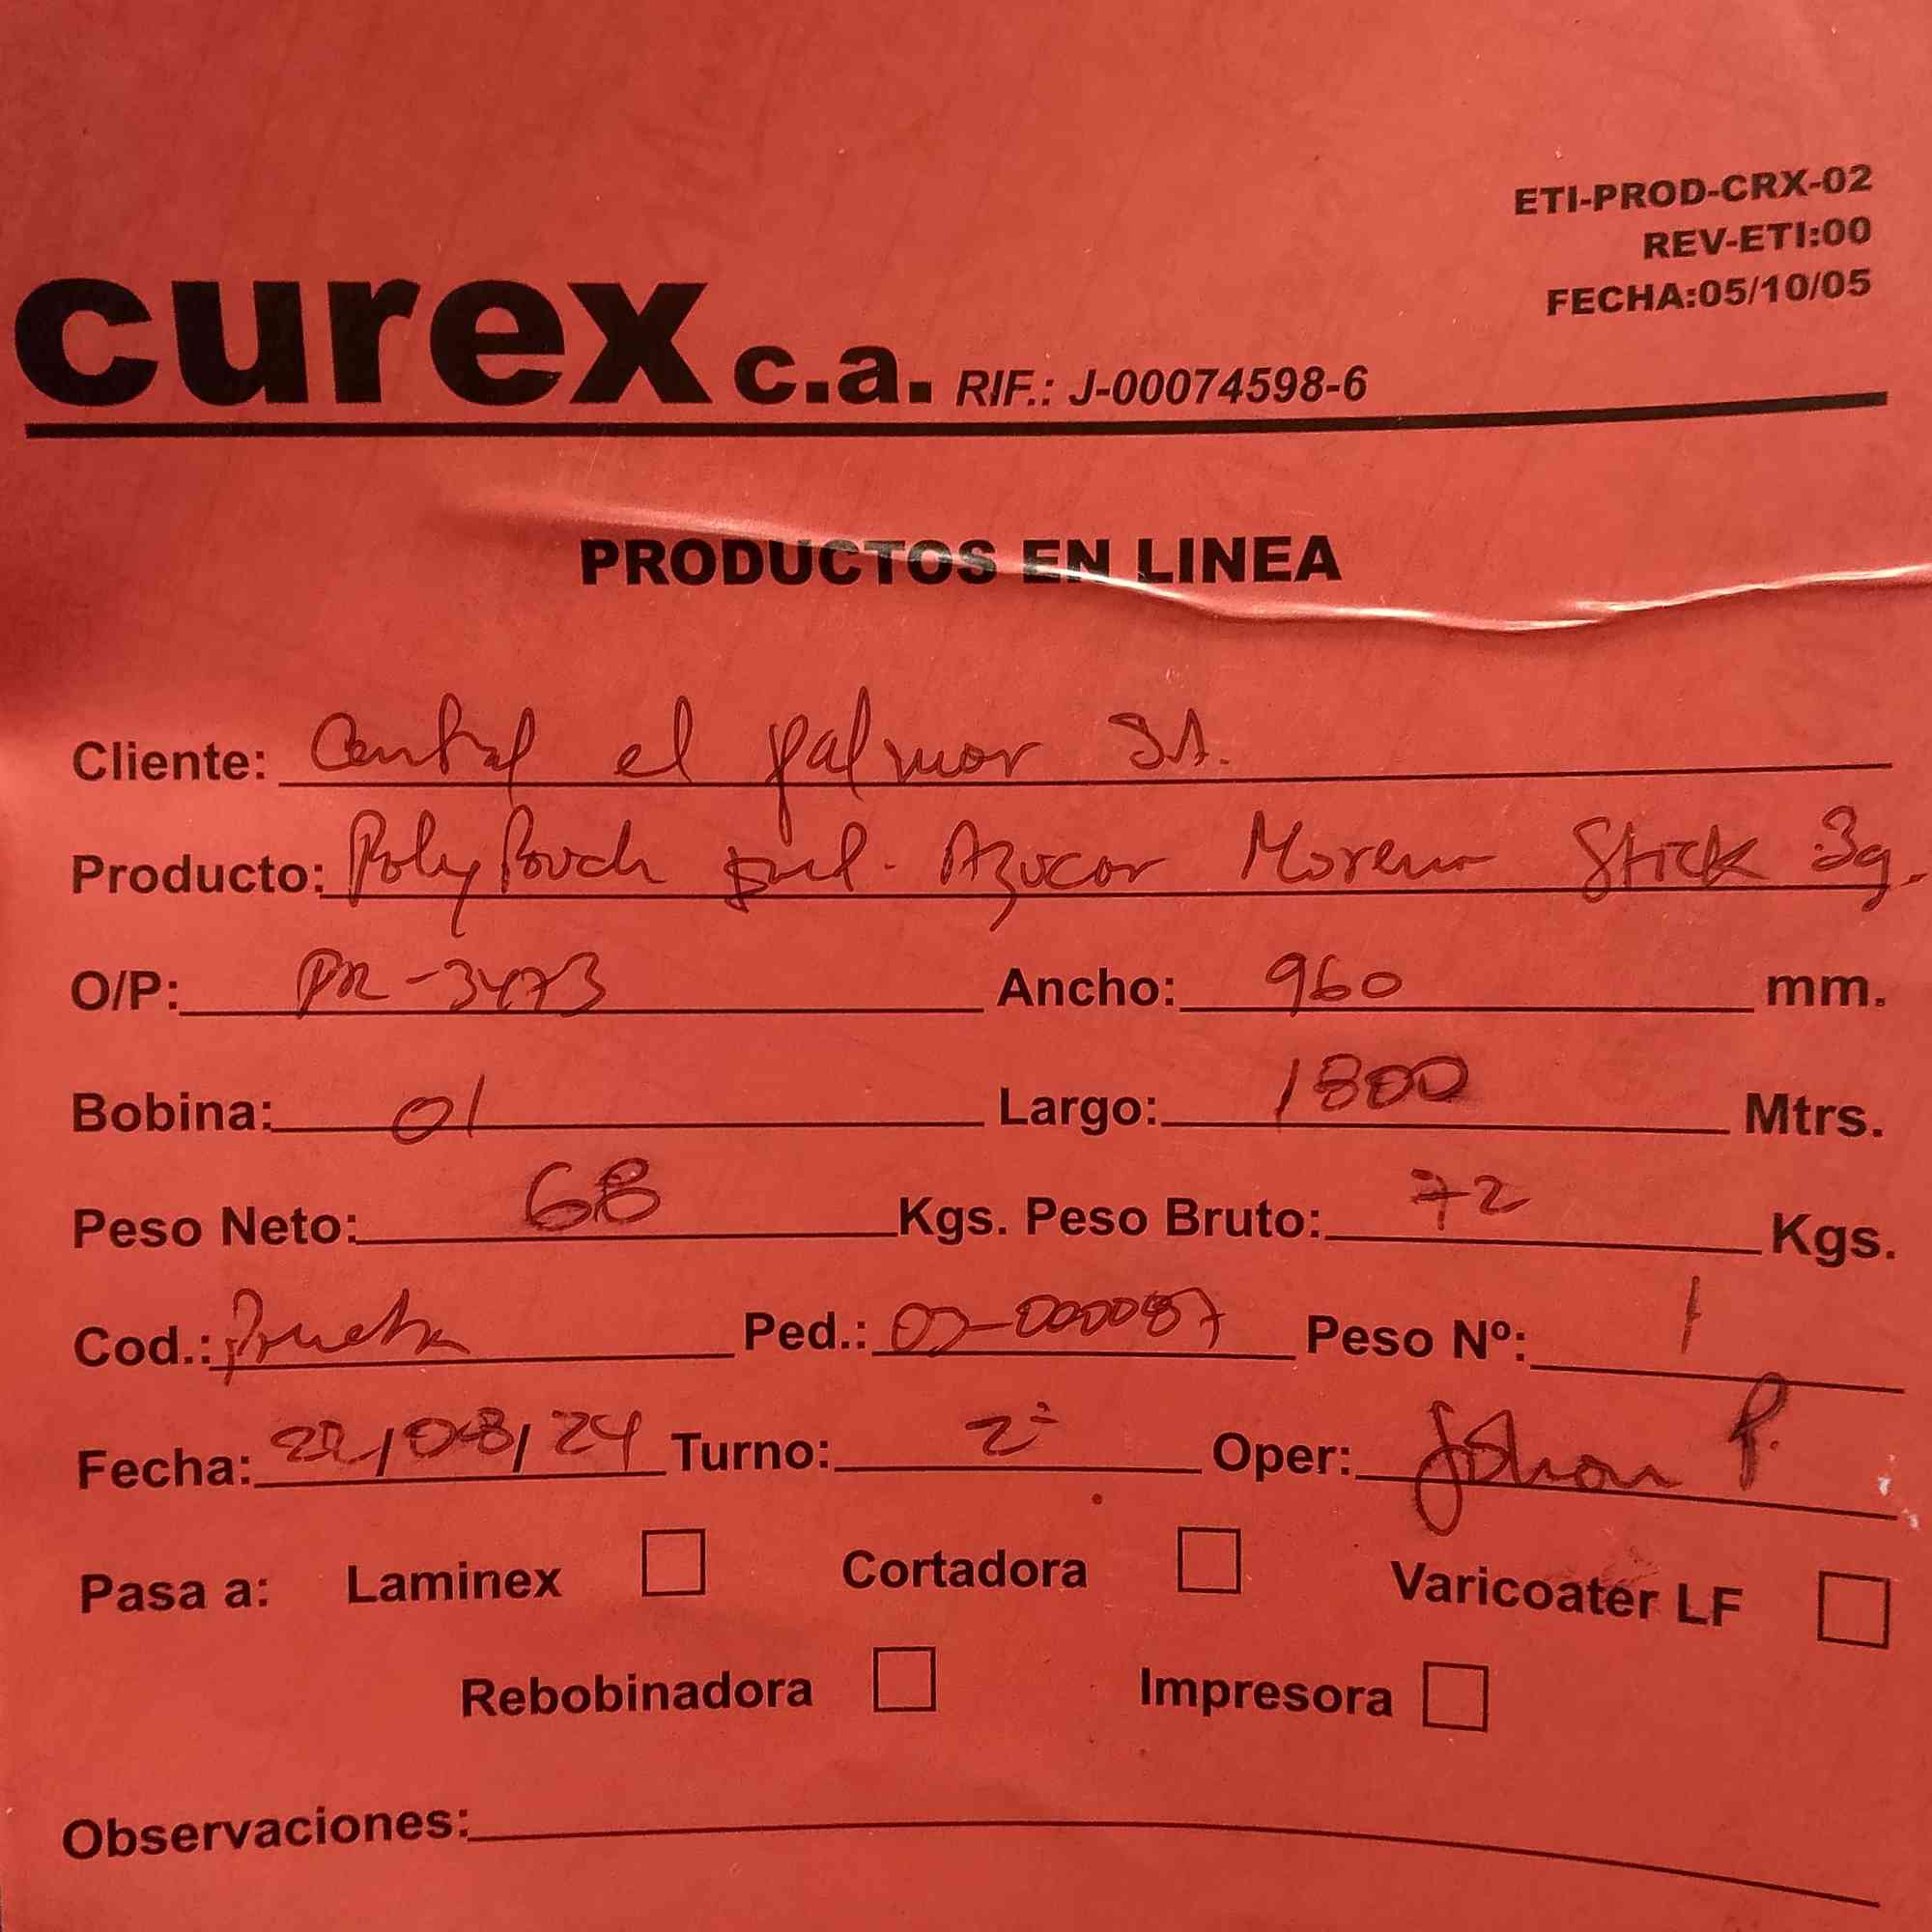 ETI-PROD-CRX-02
REV-ETI:00
FECHA:05/10/05
curex c.a. RIF.: J-00074598-6
PRODUCTOS EN LINEA
Cliente: Central el palmar S.A.
Producto: Poly Pouch Azucar Morena Stick 3g.
O/P: PR-3473 Ancho: 960 mm.
Bobina: 01 Largo: 1800 Mtrs.
Peso Neto: 68 Kgs. Peso Bruto: 72 Kgs.
Cod.: Prueba Ped.: Peso Nº: 1
Fecha: 22/08/24 Turno: 2º Oper: Johan P.
Pasa a: Laminex Cortadora Varicoater LF
Rebobinadora Impresora
Observaciones: